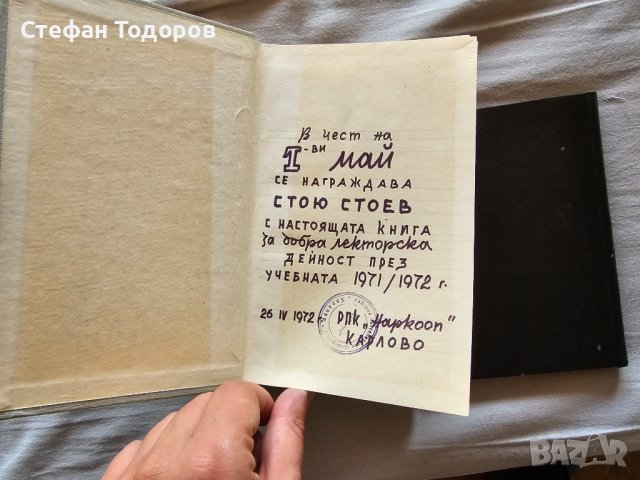 Стефан Тодоров
В чест на
I-ви май
се награждава
Стою Стоев
с настоящата книга
за добра лекторска
дейност през
учебната 1971/1972 г.
26 IV 1972 г. РПК "Наркооп"
Карлово
BAZAR